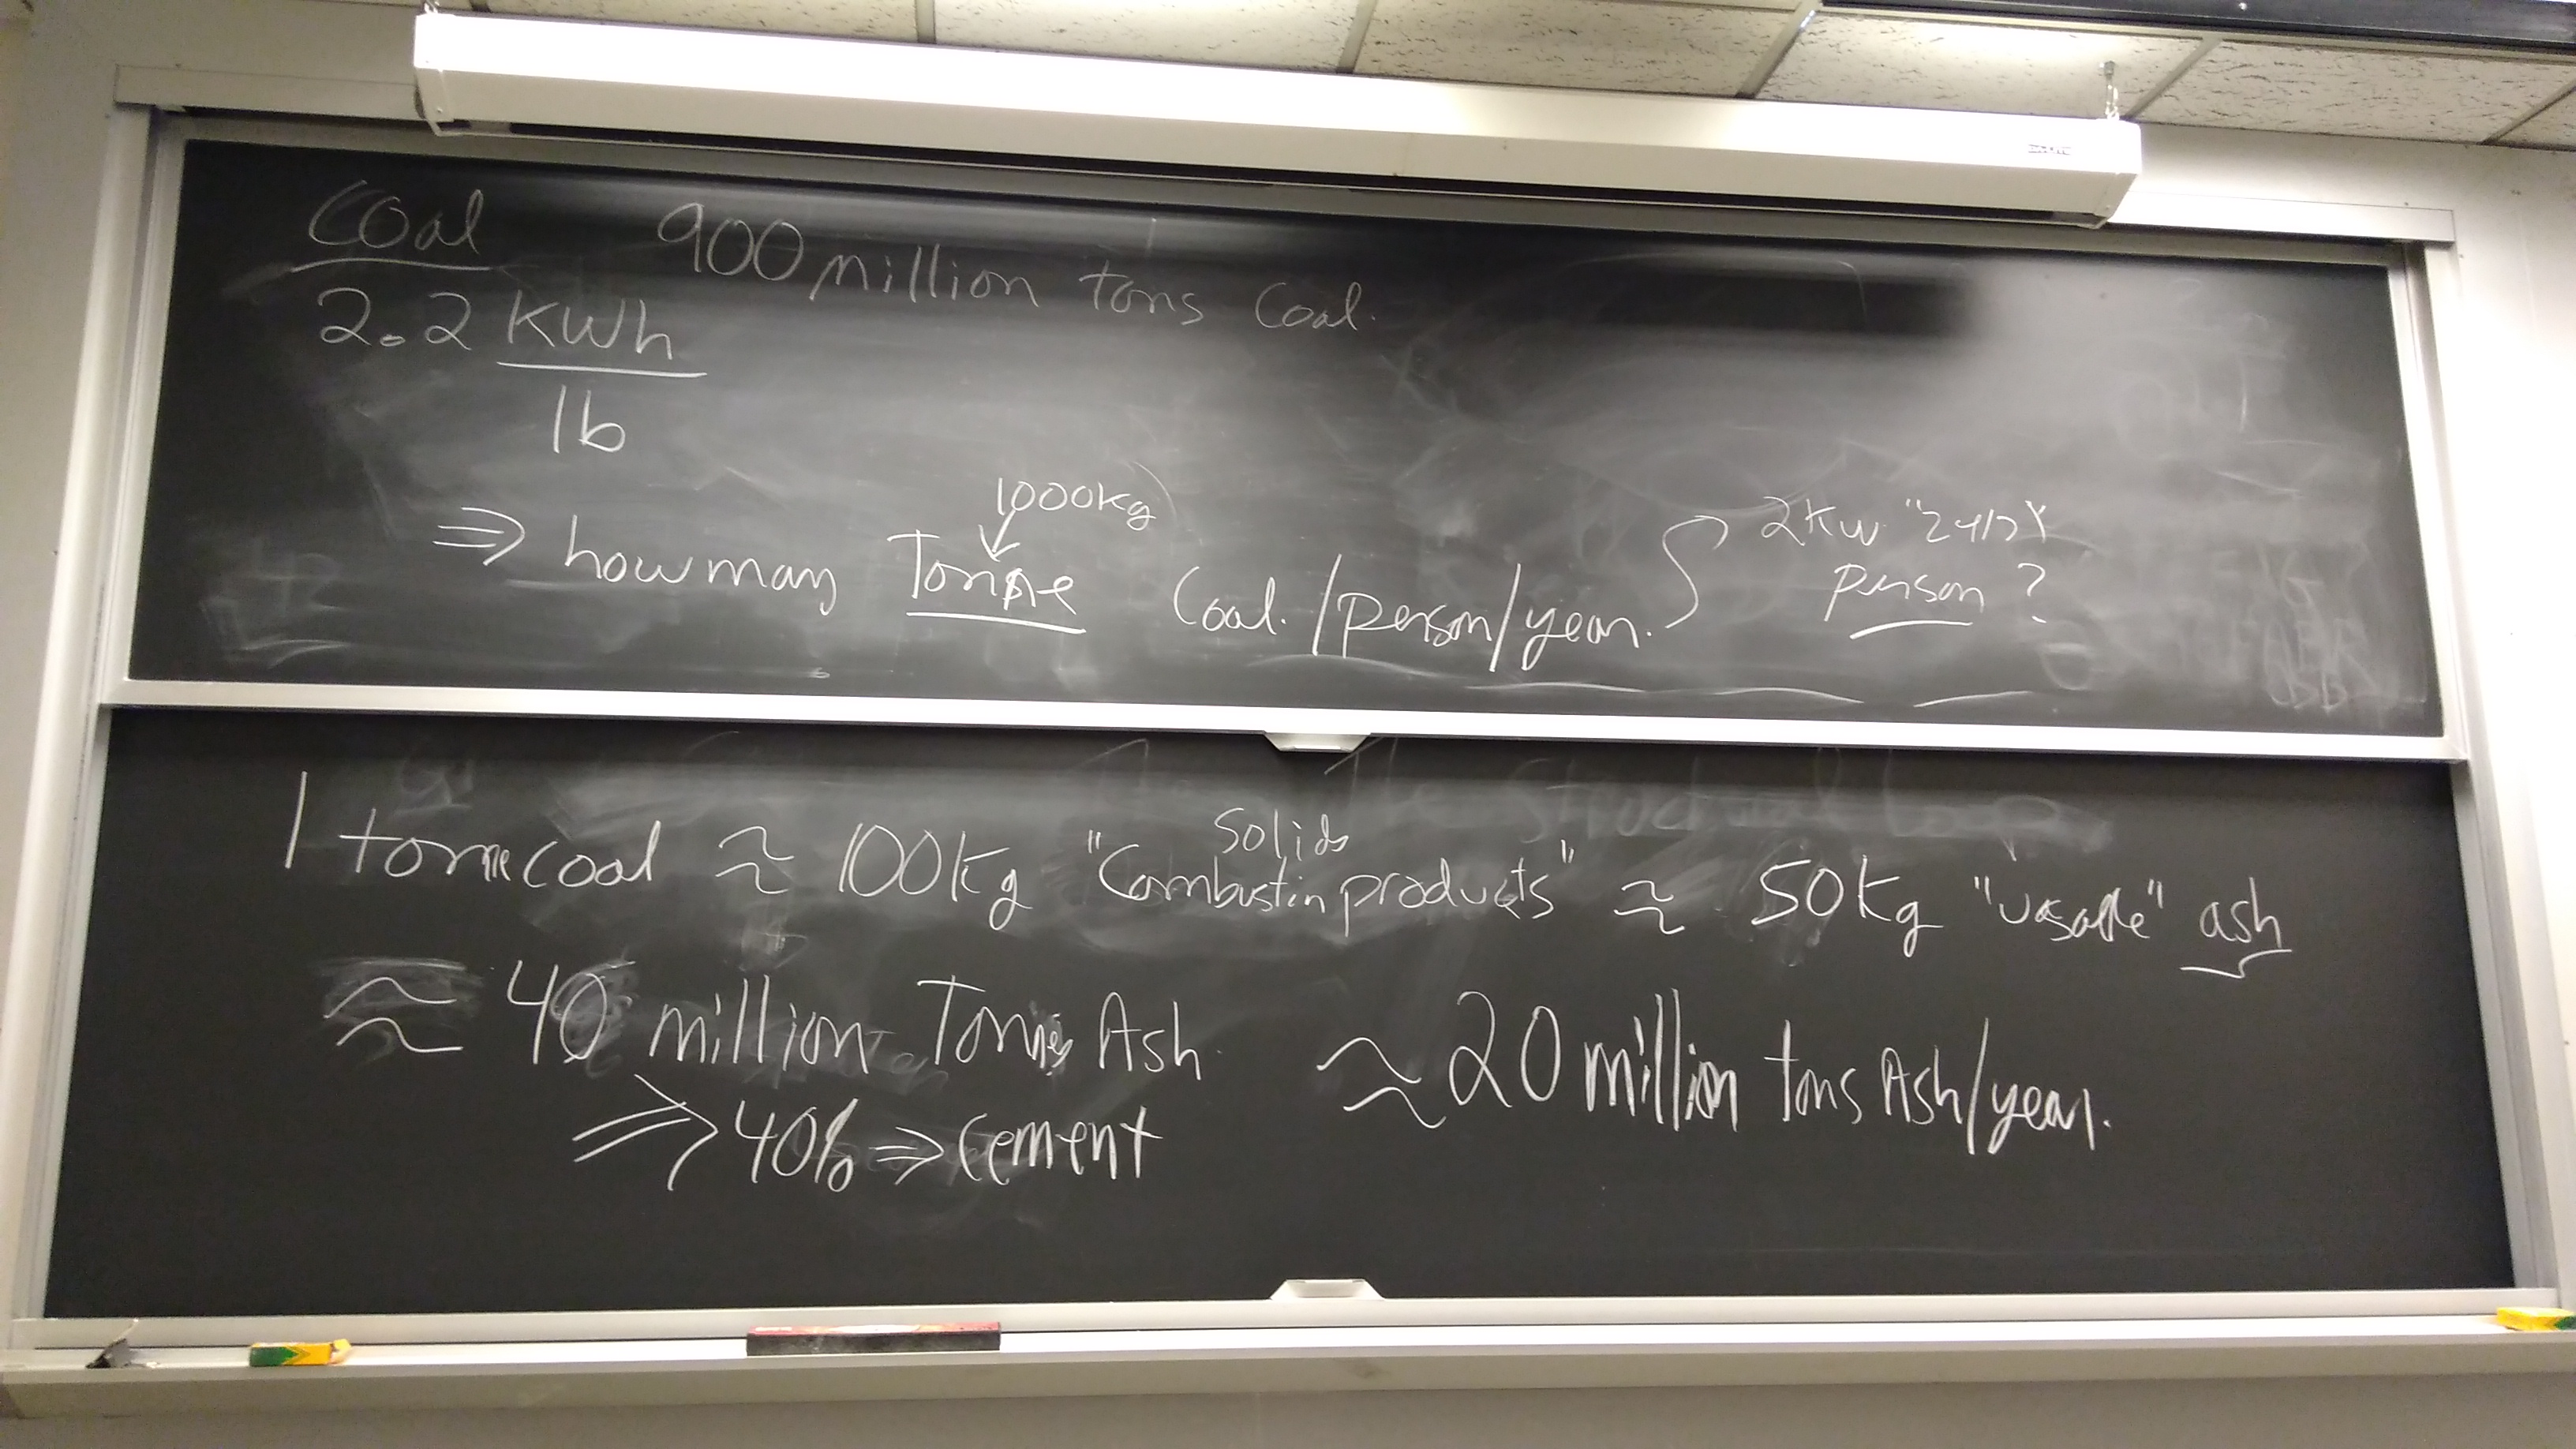 Coal 900 million tons Coal.
2.2 KWh
lb
1000kg
⇒ how many Tonne Coal. /person/year.
2Kw "24/7"
person ?
1 tonne coal ≈ 100Kg "Combustin products" ≈ 50Kg "usable" ash
Solids
≈ 40 million Tonnes Ash ≈ 20 million tons Ash/year.
⇒ 40% ⇒ cement